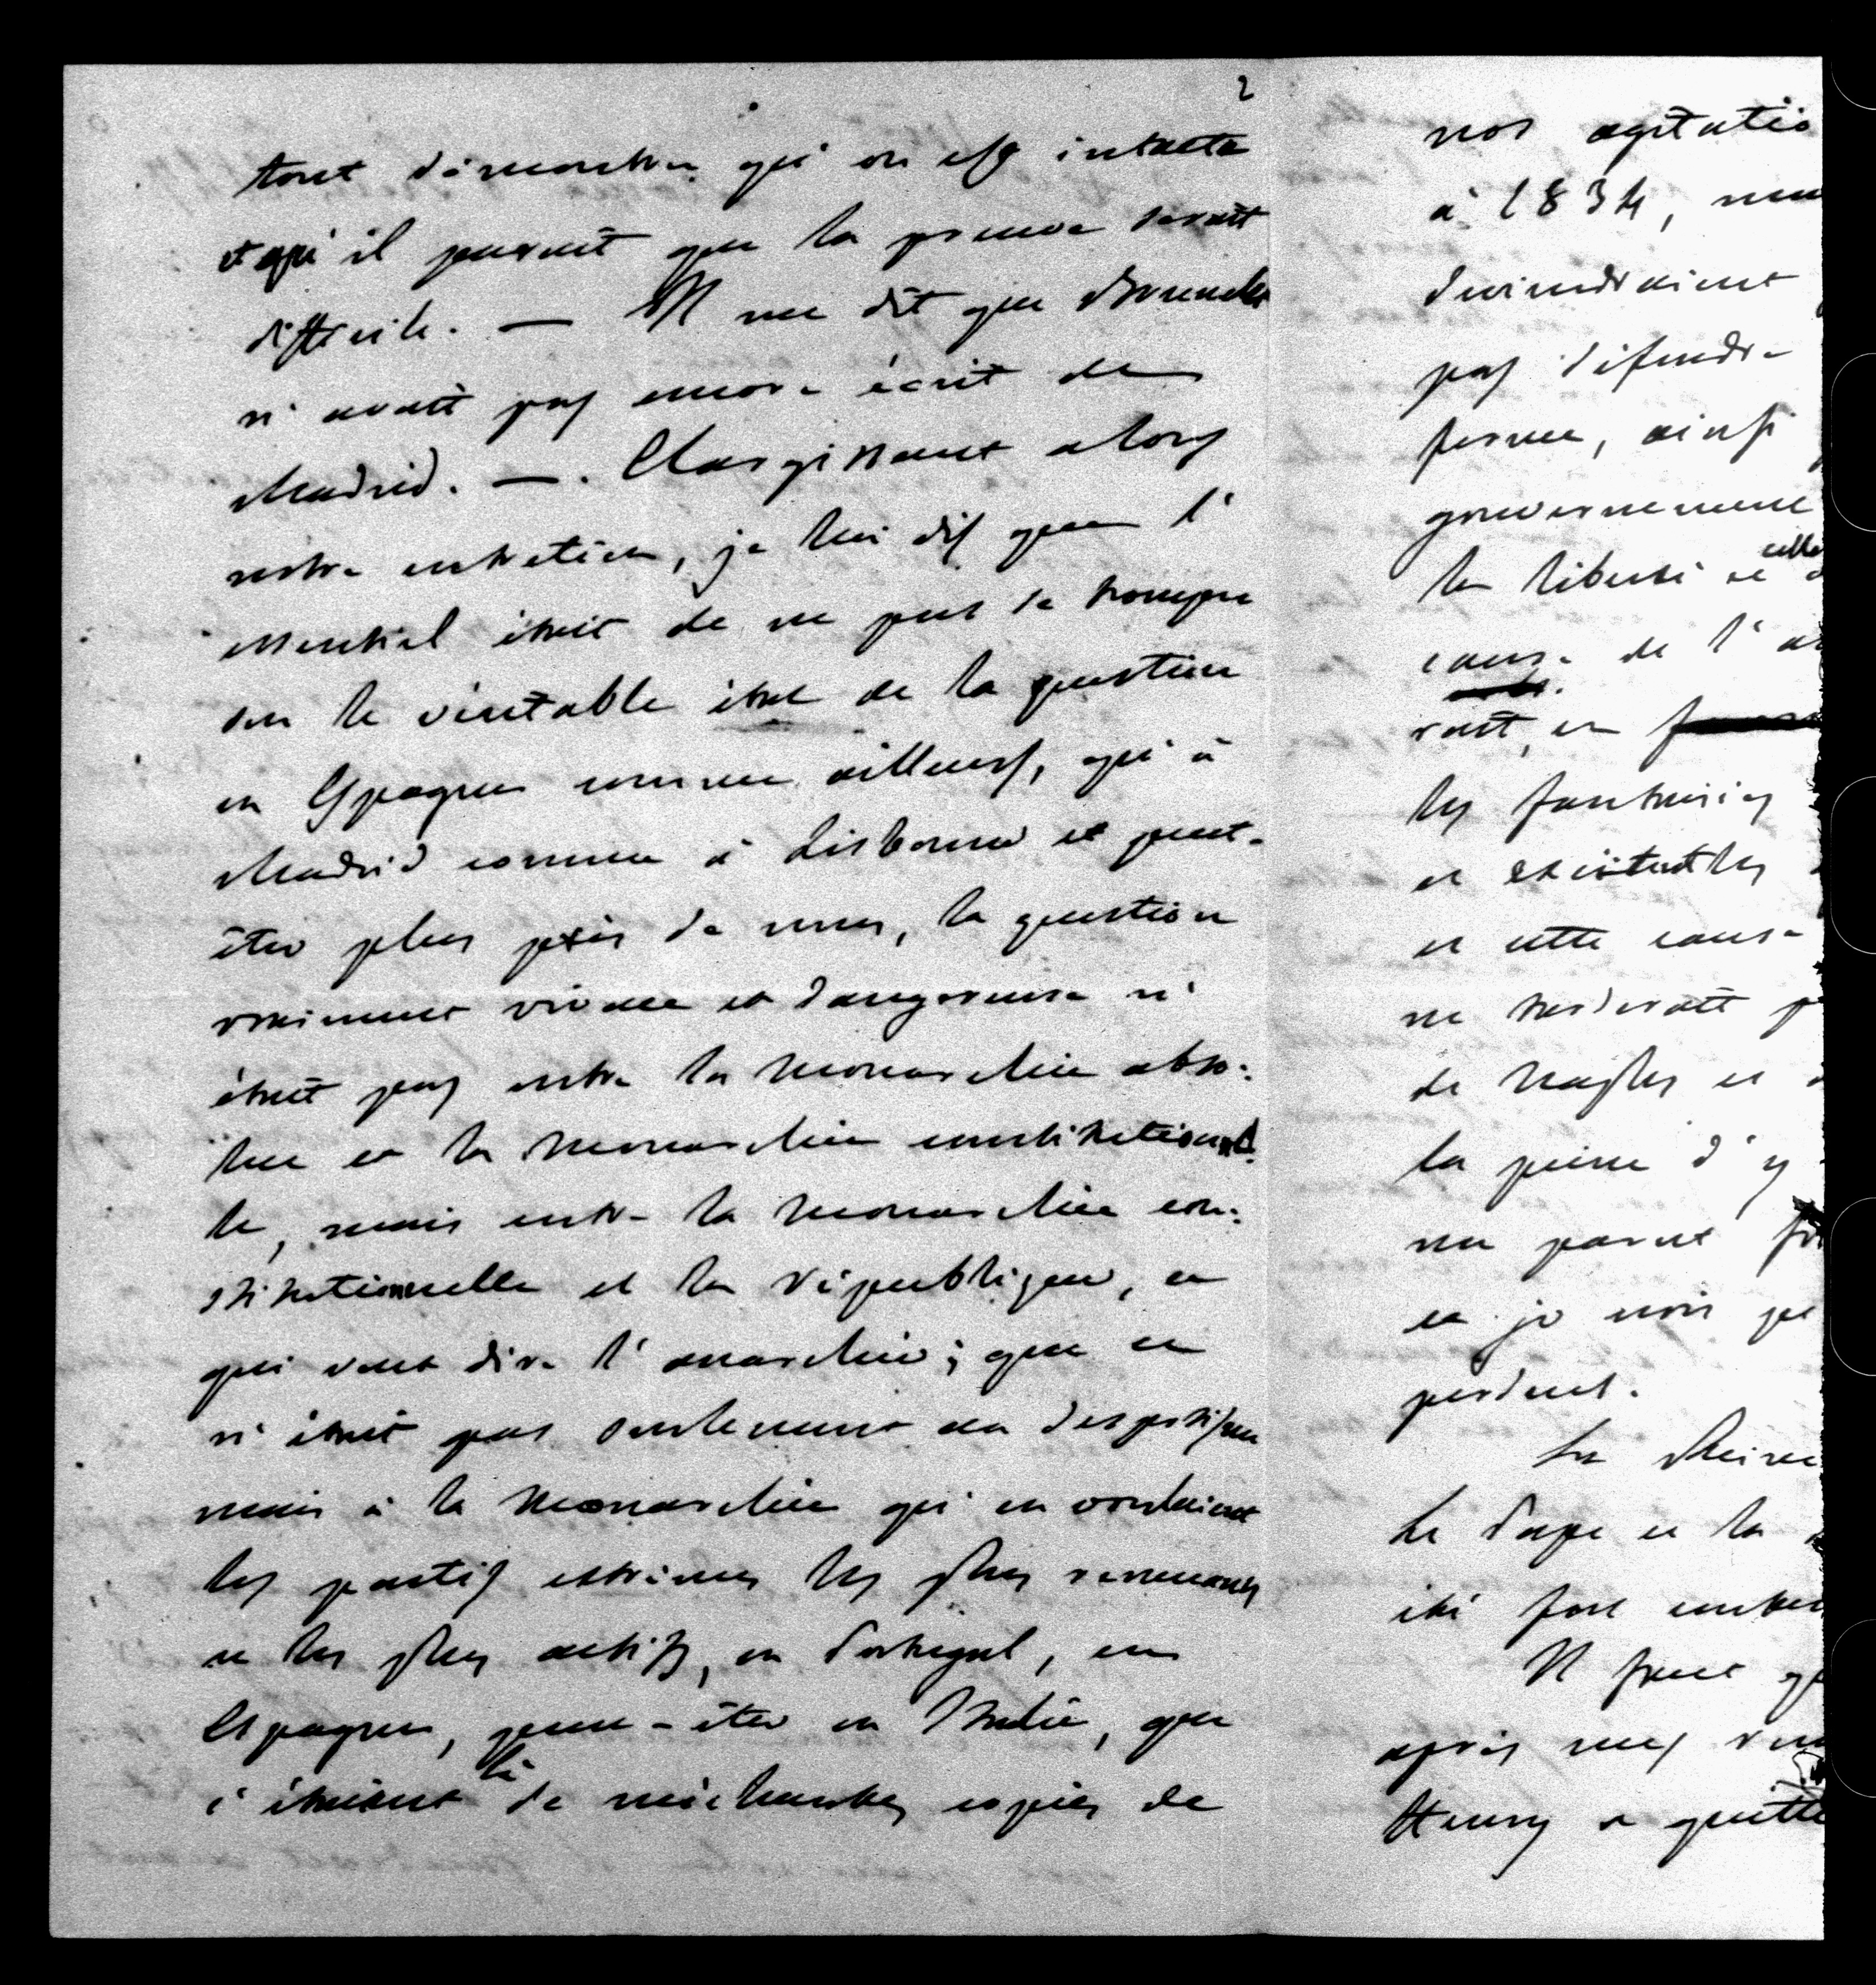 2
tout démontrer qu'on est intacte
et qu'il paraît que la preuve serait
difficile. — Il me dit que Brunck
n'avait pas encore écrit de
Madrid. — . Elargissant alors
notre entretien, je lui dis que l'
essentiel était de ne pas se tromper
sur le véritable état de la question
en Espagne comme ailleurs, qu'à
Madrid comme à Lisbonne et peut-
être plus près de nous, la question
vraiment vivace et dangereuse n'
était pas entre la Monarchie abso-
lue et la Monarchie constitutionnel-
le, mais entre la Monarchie con-
stitutionnelle et la République, ce
qui veut dire l'anarchie; que ce
n'était pas seulement au despotisme
mais à la Monarchie qu'en voulaient
les partis extrêmes les plus remuans
et les plus actifs, en Portugal, en
Espagne, peut-être en Italie, que
c'étaient là de méchantes copies de
nos agitatio
à 1834,
deviendraient
pas défendre
ferme, ainsi
gouvernement
la liberté et celle
cause de l'
rait, en
les fantaisies
et excitent les
et cette cause
ne tarderait p
de Naples et
la peine d'y
me parut
et je crois
perdent.
La Reine
Le Pape et la
été fort
Il faut
après mes
Henry a quitté